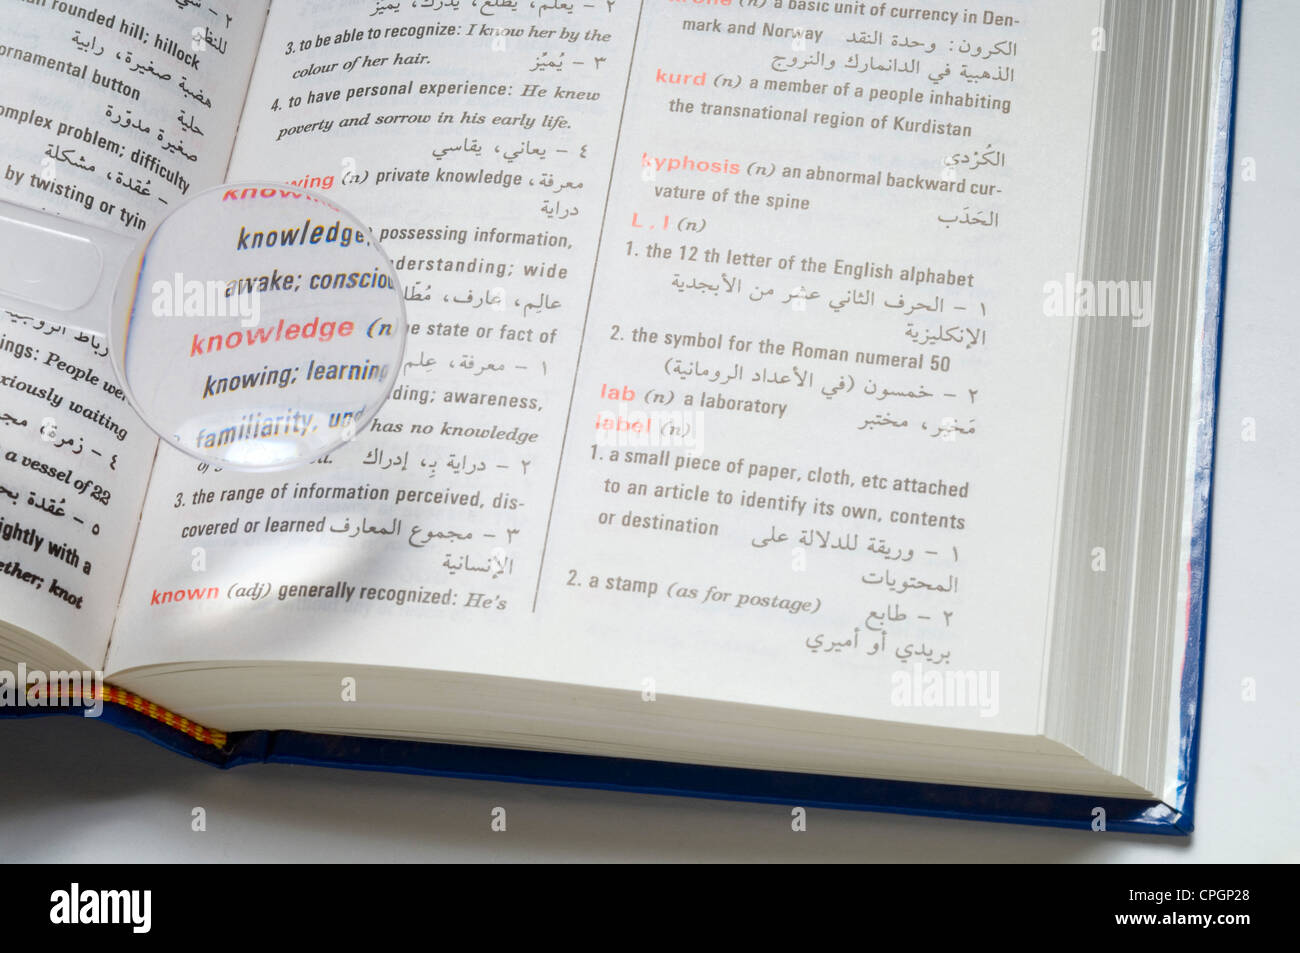 ٢ – شي
an rounded hill; hillock
للنظر
هضبة صغيرة، رابية
ornamental button
حلية
صغيرة مدوّرة
omplex problem; difficulty
– عُقدة، مشكلة
by twisting or tyin
رباط الزوجية
ings: People wer
xiously waiting
٤ – زمرة، مجم
a vessel of 22
٥ – عُقدة بح
ightly with a
ether; knot
٢ – يعلم، يطلع، يدرك، يميّز
3. to be able to recognize: I know her by the
colour of her hair.
٣ – يُميّز
4. to have personal experience: He knew
poverty and sorrow in his early life.
٤ – يعاني، يقاسي
knowing (n) private knowledge معرفة،
دراية
knowledge,
possessing information,
awake; consciou
nderstanding; wide
عالِم، عارف،
knowledge (n
he state or fact of
knowing; learning
١ – معرفة، عِلم
familiarity, und
ding; awareness,
has no knowledge
٢ – دراية بـِ، إدراك
3. the range of information perceived, dis-
covered or learned ٣ – مجموع المعارف
الإنسانية
known (adj) generally recognized: He's
krone (n) a basic unit of currency in Den-
mark and Norway الكرون: وحدة النقد
الذهبية في الدانمارك والنروج
kurd (n) a member of a people inhabiting
the transnational region of Kurdistan
الكُرْدي
kyphosis (n) an abnormal backward cur-
vature of the spine الحَدَب
L , l (n)
1. the 12 th letter of the English alphabet
١ – الحرف الثاني عشر من الأبجدية
الإنكليزية
2. the symbol for the Roman numeral 50
٢ – خمسون (في الأعداد الرومانية)
lab (n) a laboratory مَخبَر، مختبر
label (n)
1. a small piece of paper, cloth, etc attached
to an article to identify its own, contents
or destination ١ – وريقة للدلالة على
المحتويات
2. a stamp (as for postage) ٢ – طابع
بريدي أو أميري
alamy
Image ID: CPGP28
www.alamy.com